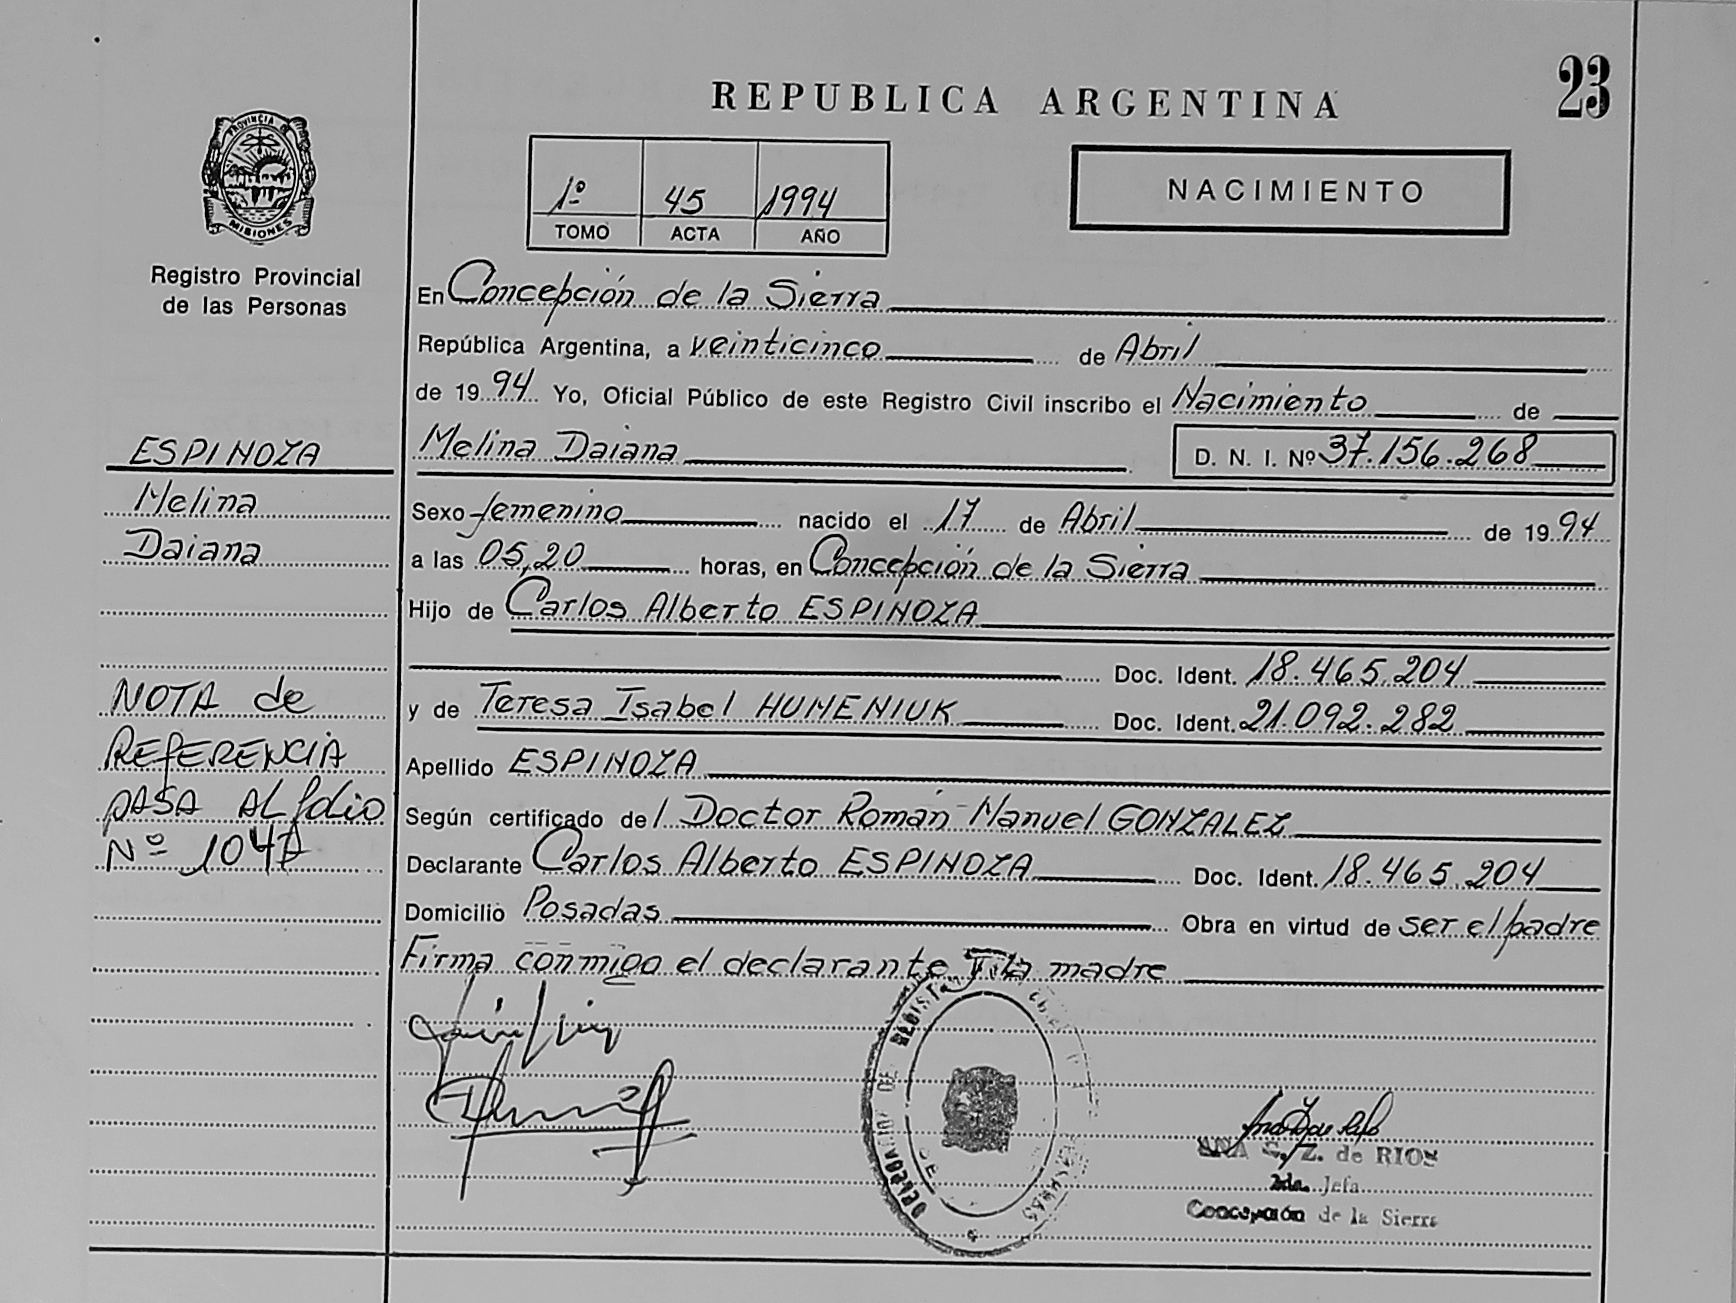 23
REPUBLICA ARGENTINA
PROVINCIA DE
MISIONES
Registro Provincial
de las Personas
1º 45 1994
TOMO ACTA AÑO
NACIMIENTO
En Concepción de la Sierra
República Argentina, a veinticinco de Abril
de 1994 Yo, Oficial Público de este Registro Civil inscribo el Nacimiento de
Melina Daiana D. N. I. Nº 37.156.268
Sexo femenino nacido el 17 de Abril de 1994
a las 05,20 horas, en Concepción de la Sierra
Hijo de Carlos Alberto ESPINOZA
Doc. Ident. 18.465.204
y de Teresa Isabel HUMENIUK Doc. Ident. 21.092.282
Apellido ESPINOZA
Según certificado del Doctor Román Manuel GONZALEZ
Declarante Carlos Alberto ESPINOZA Doc. Ident. 18.465.204
Domicilio Posadas Obra en virtud de ser el padre
Firma conmigo el declarante la madre
ESPINOZA
Melina
Daiana
NOTA de
REFERENCIA
PASA AL folio
Nº 104
S. Z. de RIOS
2da. Jefa
Concepción de la Sierra